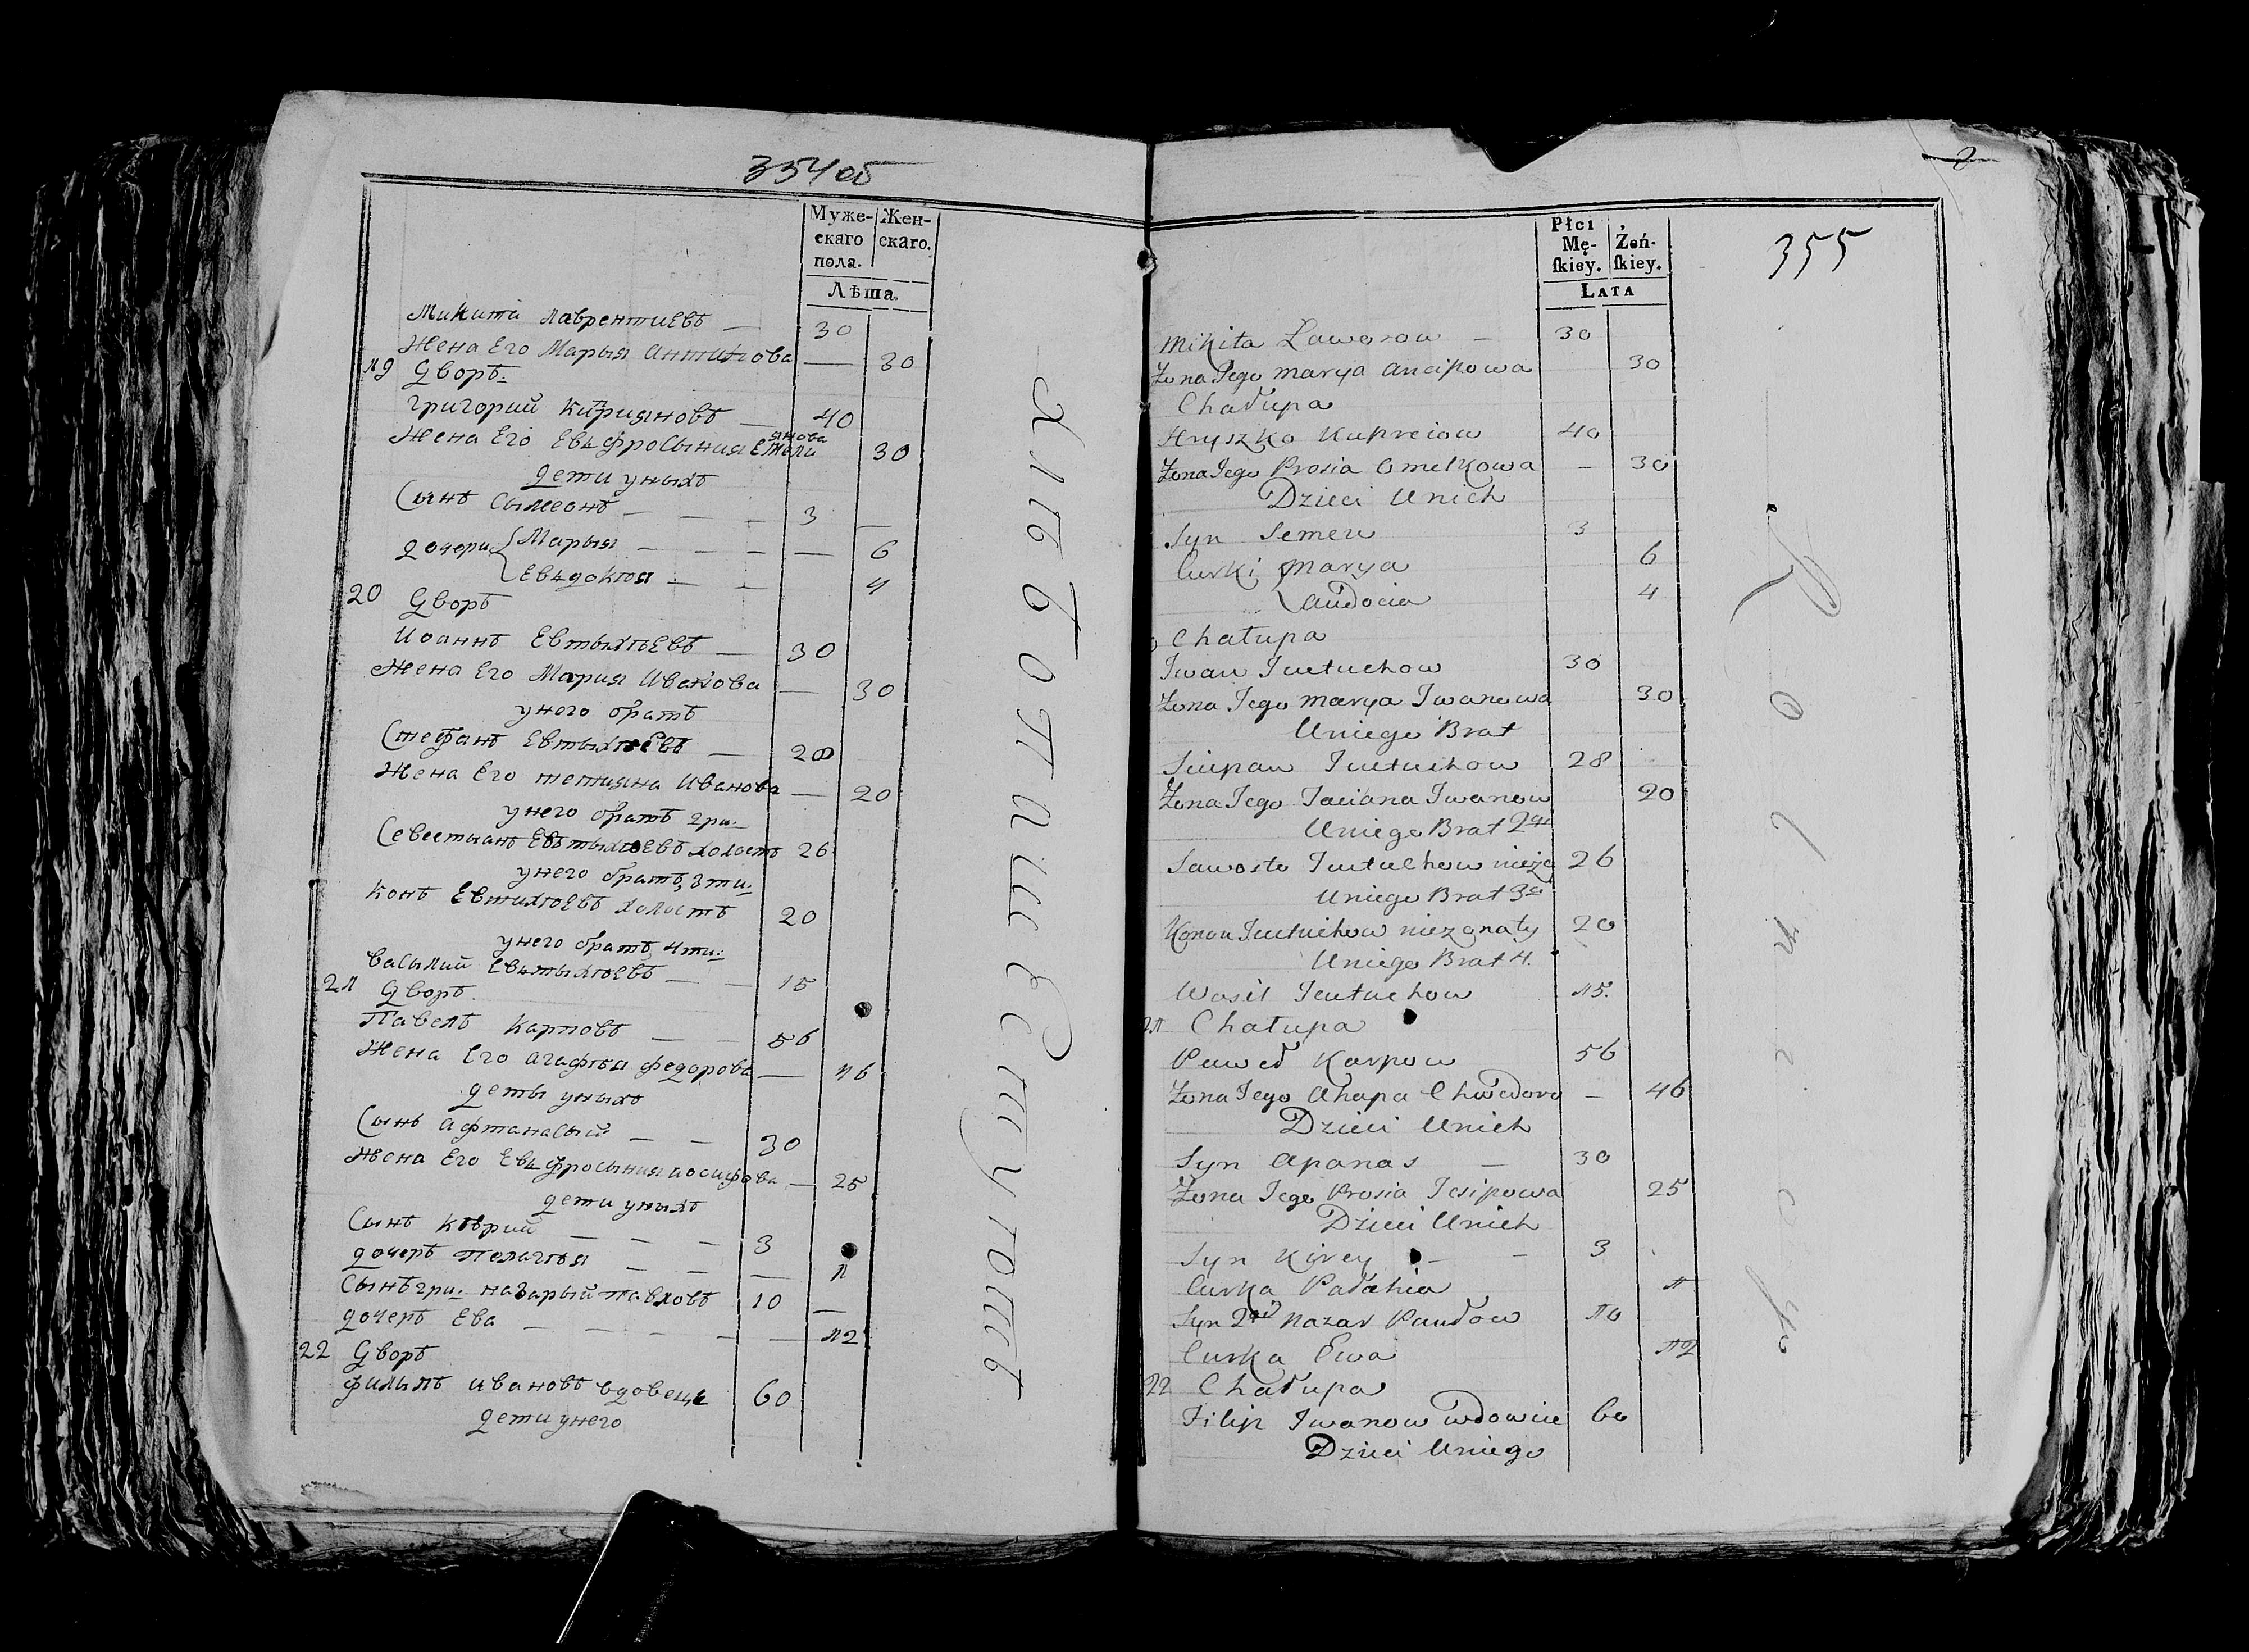 354об
Муже-
скаго
пола.
Жен-
скаго.
Лѣта.
Микита Лаврентиевъ — 30
Жена Его Марья Антипова — 30
19 Дворъ
Григорий Киприяновъ — 40
Жена Его Евфросыния Емелиянова 30
дети уныхъ
Сынъ Сымеонъ — — — 3 —
дочери Марья — — — — 6
Евдокия — — 4
20 Дворъ
Иоаннъ Евтыхиевъ — 30
Жена Его Мария Иванова — 30
унего братъ
Стефанъ Евтыхиевъ — 28
Жена Его тетияна Иванова — 20
унего братъ
Севестыанъ Евтыхиевъ холостъ 26
унего братъ 3ти:
Конъ Евтихиевъ холостъ 20
унего братъ 4ти:
Василий Евтыхиевъ — — 15
21 Дворъ
Павелъ Карповъ — — 56
Жена Его Агафия федорова — 46
деты уныхъ
Сынъ Афтанасый — — 30
Жена Его Евфросыния иосифова — 25
дети уныхъ
Сынъ Киррий — — — 3
дочеръ Пелагия — — — 1
Сынъ назарый павловъ 10 —
дочеръ Ева — — — — — 12
22 Дворъ
филипъ ивановъ вдовецъ 60
дети унего
355
Płci
Mę-
ſkiey.
Żeń-
ſkiey.
Lata
Mikita Laworow — 30
Żona Jego Marya Ancipowa 30
Chałupa
Hryszko Kupreiow 40
Żona Jego Prosia Omelkowa — 30
Dzieci Unich
Syn Semen 3
Curki Marya 6
Audocia 4
Chałupa
Iwan Jeutuchow 30
Żona Jego Marya Iwanowa 30
Uniego Brat
Sciepan Jeutuchow 28
Żona Jego Taciana Iwanow 20
Uniego Brat 2gi
Sawosto Jeutuchow 26
Uniego Brat 3ci
Konon Jeutuchow niezonaty 20
Uniego Brat 4.
Wasil Jeutuchow 15.
21 Chałupa
Paweł Karpow 56
Żona Jego Ahapa Chwedoro — 46
Dzieci Unich
Syn Apanas — 30
Żona Jego Prosia Jesipowa 25
Dzieci Unich
Syn Kirey — — 3
Curka Pałahia 1
Syn 2gi Nazar Paułow 10
Curka Ewa 12
22 Chałupa
Filip Iwanow wdowiec 60
Dzieci Uniego